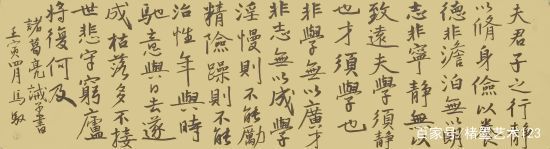 夫君子之行静
以脩身儉以養
德非澹泊無以明
志非寧静無以
致遠夫學須静
也才須學也
非學無以廣才
非志無以成學
淫慢則不能勵
精險躁則不能
治性年與時
馳意與日去遂
成枯落多不接
世悲守窮廬
將復何及
諸葛亮誡子書
壬寅四月馬
百家号/楮墨艺术123